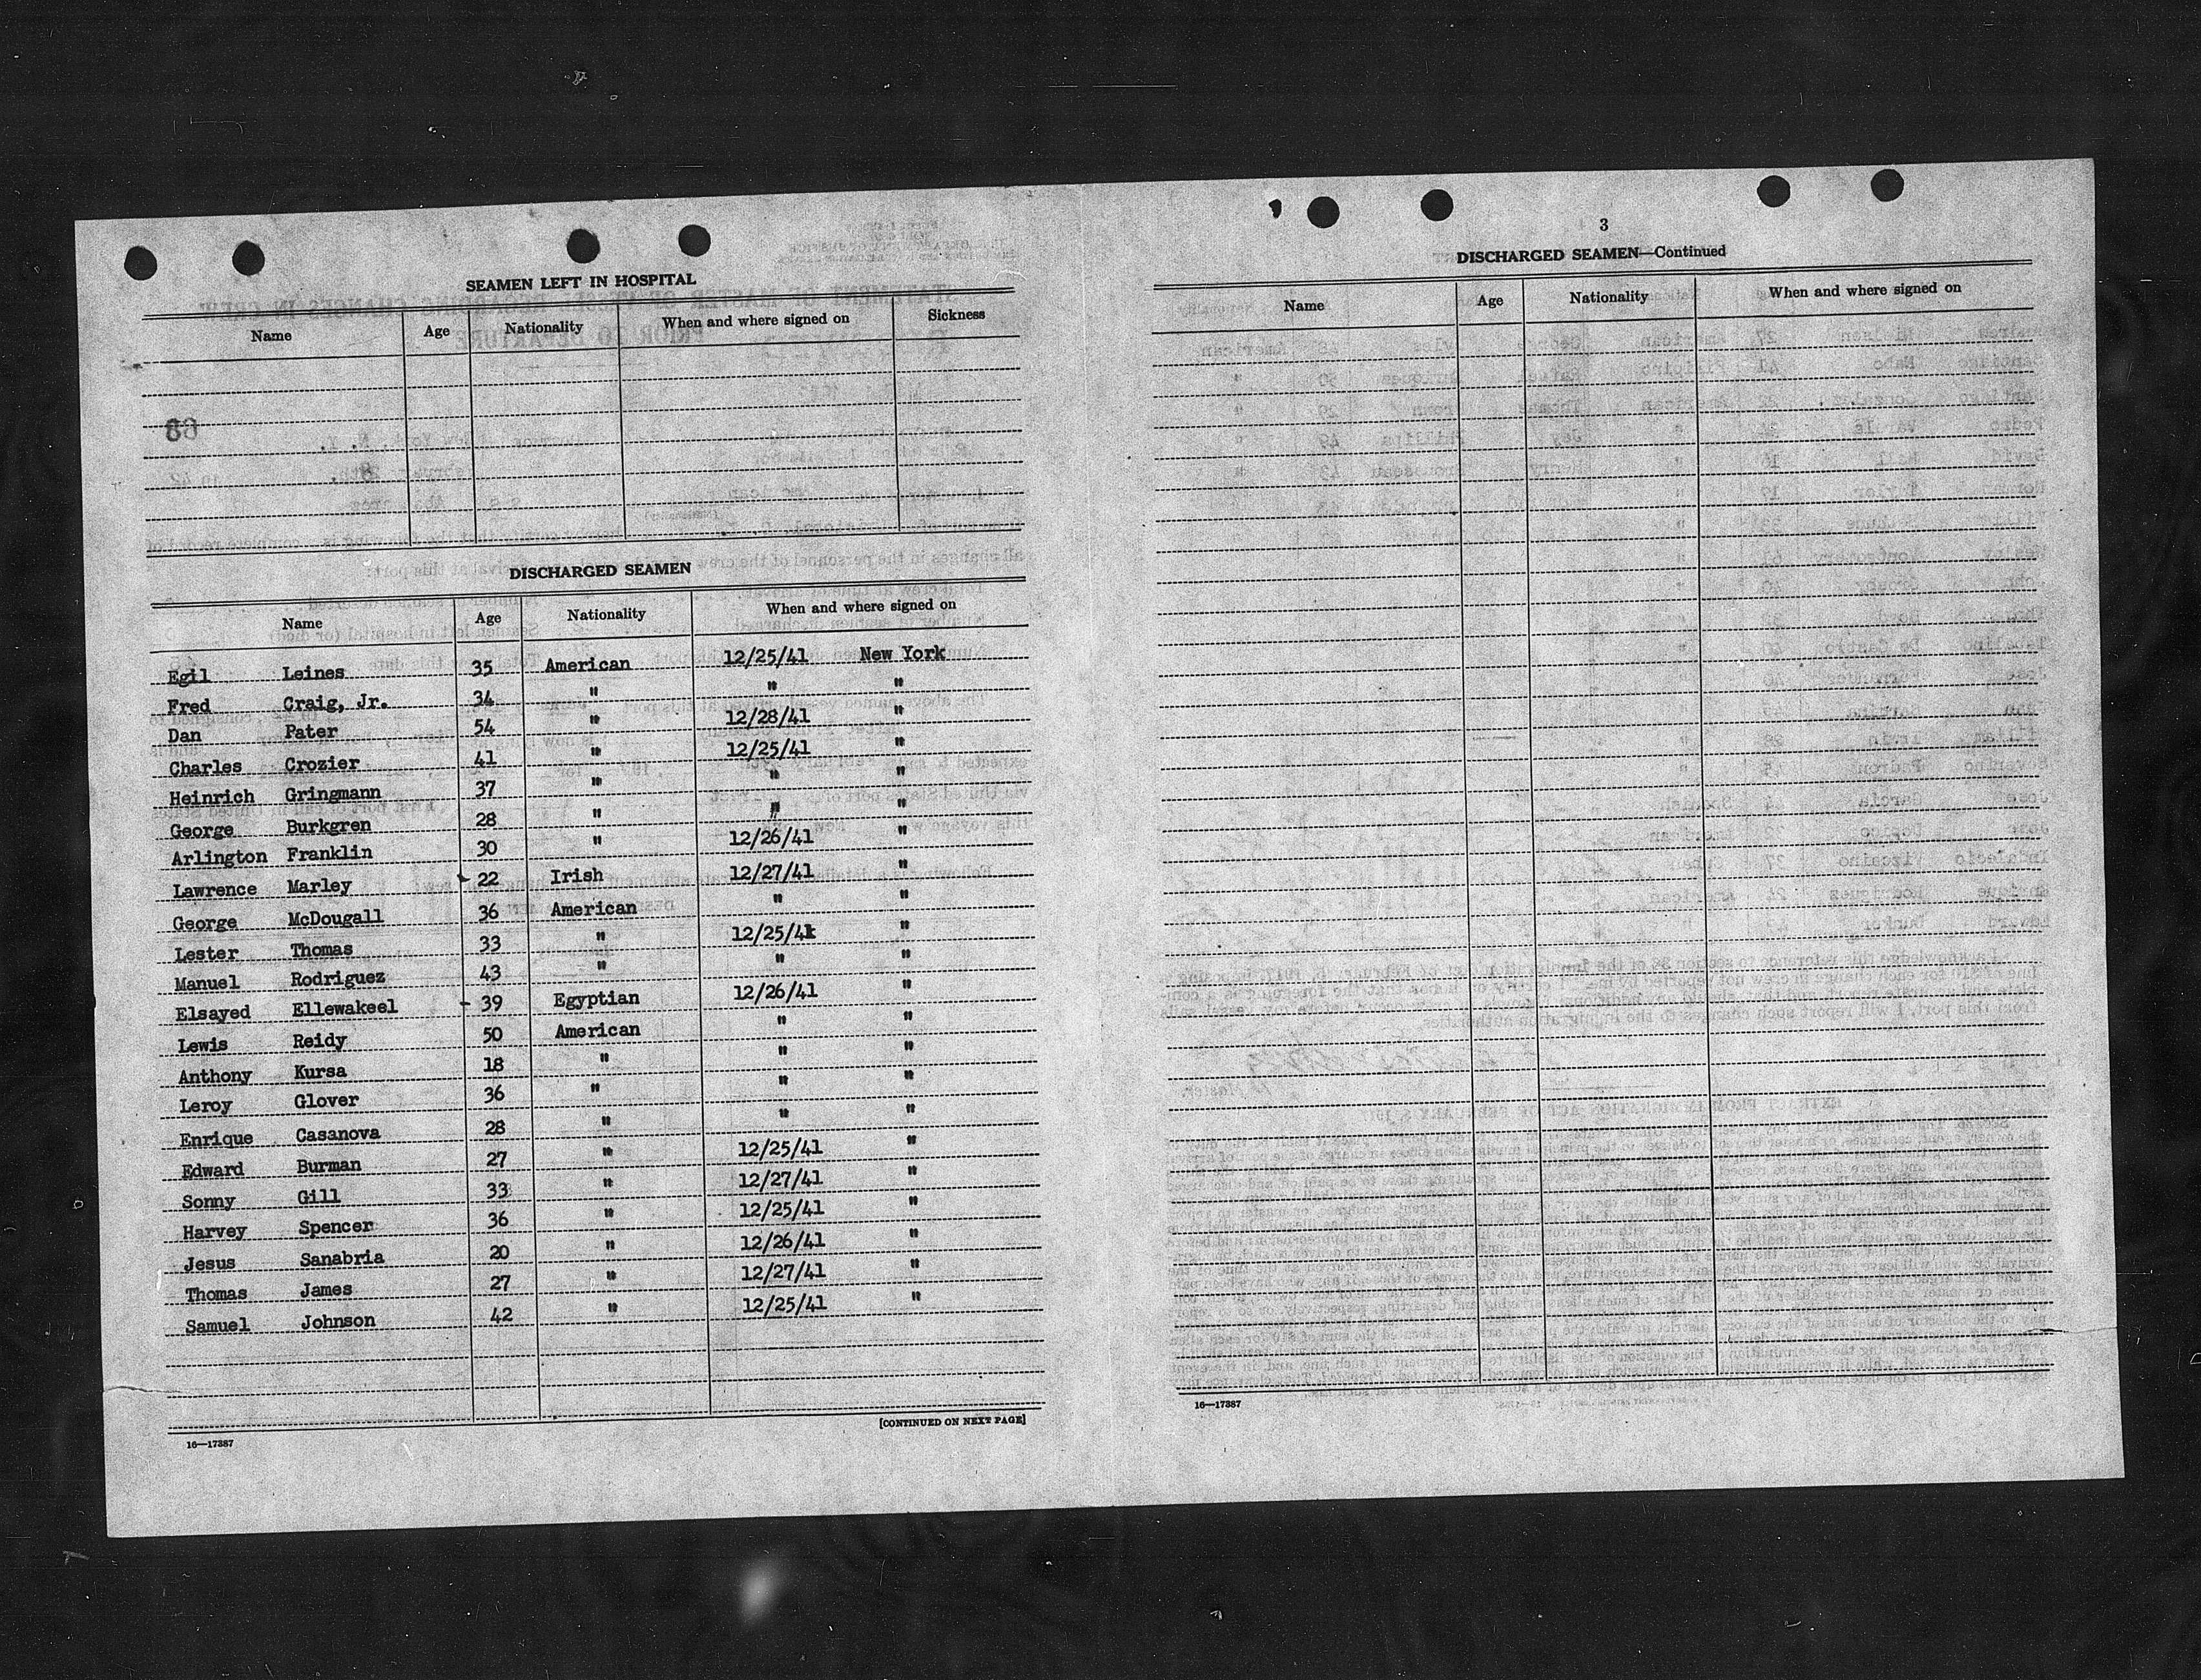 SEAMEN LEFT IN HOSPITAL
Name Age Nationality When and where signed on Sickness
68
DISCHARGED SEAMEN
Name Age Nationality When and where signed on
Egil Leines 35 American 12/25/41 New York
Fred Craig, Jr. 34 " " "
Dan Pater 54 " 12/28/41 "
Charles Crozier 41 " 12/25/41 "
Heinrich Gringmann 37 " " "
George Burkgren 28 " " "
Arlington Franklin 30 " 12/26/41 "
Lawrence Marley - 22 Irish 12/27/41 "
George McDougall 36 American " "
Lester Thomas 33 " 12/25/41 "
Manuel Rodriguez 43 " " "
Elsayed Ellewakeel - 39 Egyptian 12/26/41 "
Lewis Reidy 50 American " "
Anthony Kursa 18 " " "
Leroy Glover 36 " " "
Enrique Casanova 28 " " "
Edward Burman 27 " 12/25/41 "
Sonny Gill 33 " 12/27/41 "
Harvey Spencer 36 " 12/25/41 "
Jesus Sanabria 20 " 12/26/41 "
Thomas James 27 " 12/27/41 "
Samuel Johnson 42 " 12/25/41 "
[CONTINUED ON NEXT PAGE]
16—17387
3
DISCHARGED SEAMEN—Continued
Name Age Nationality When and where signed on
16—17387